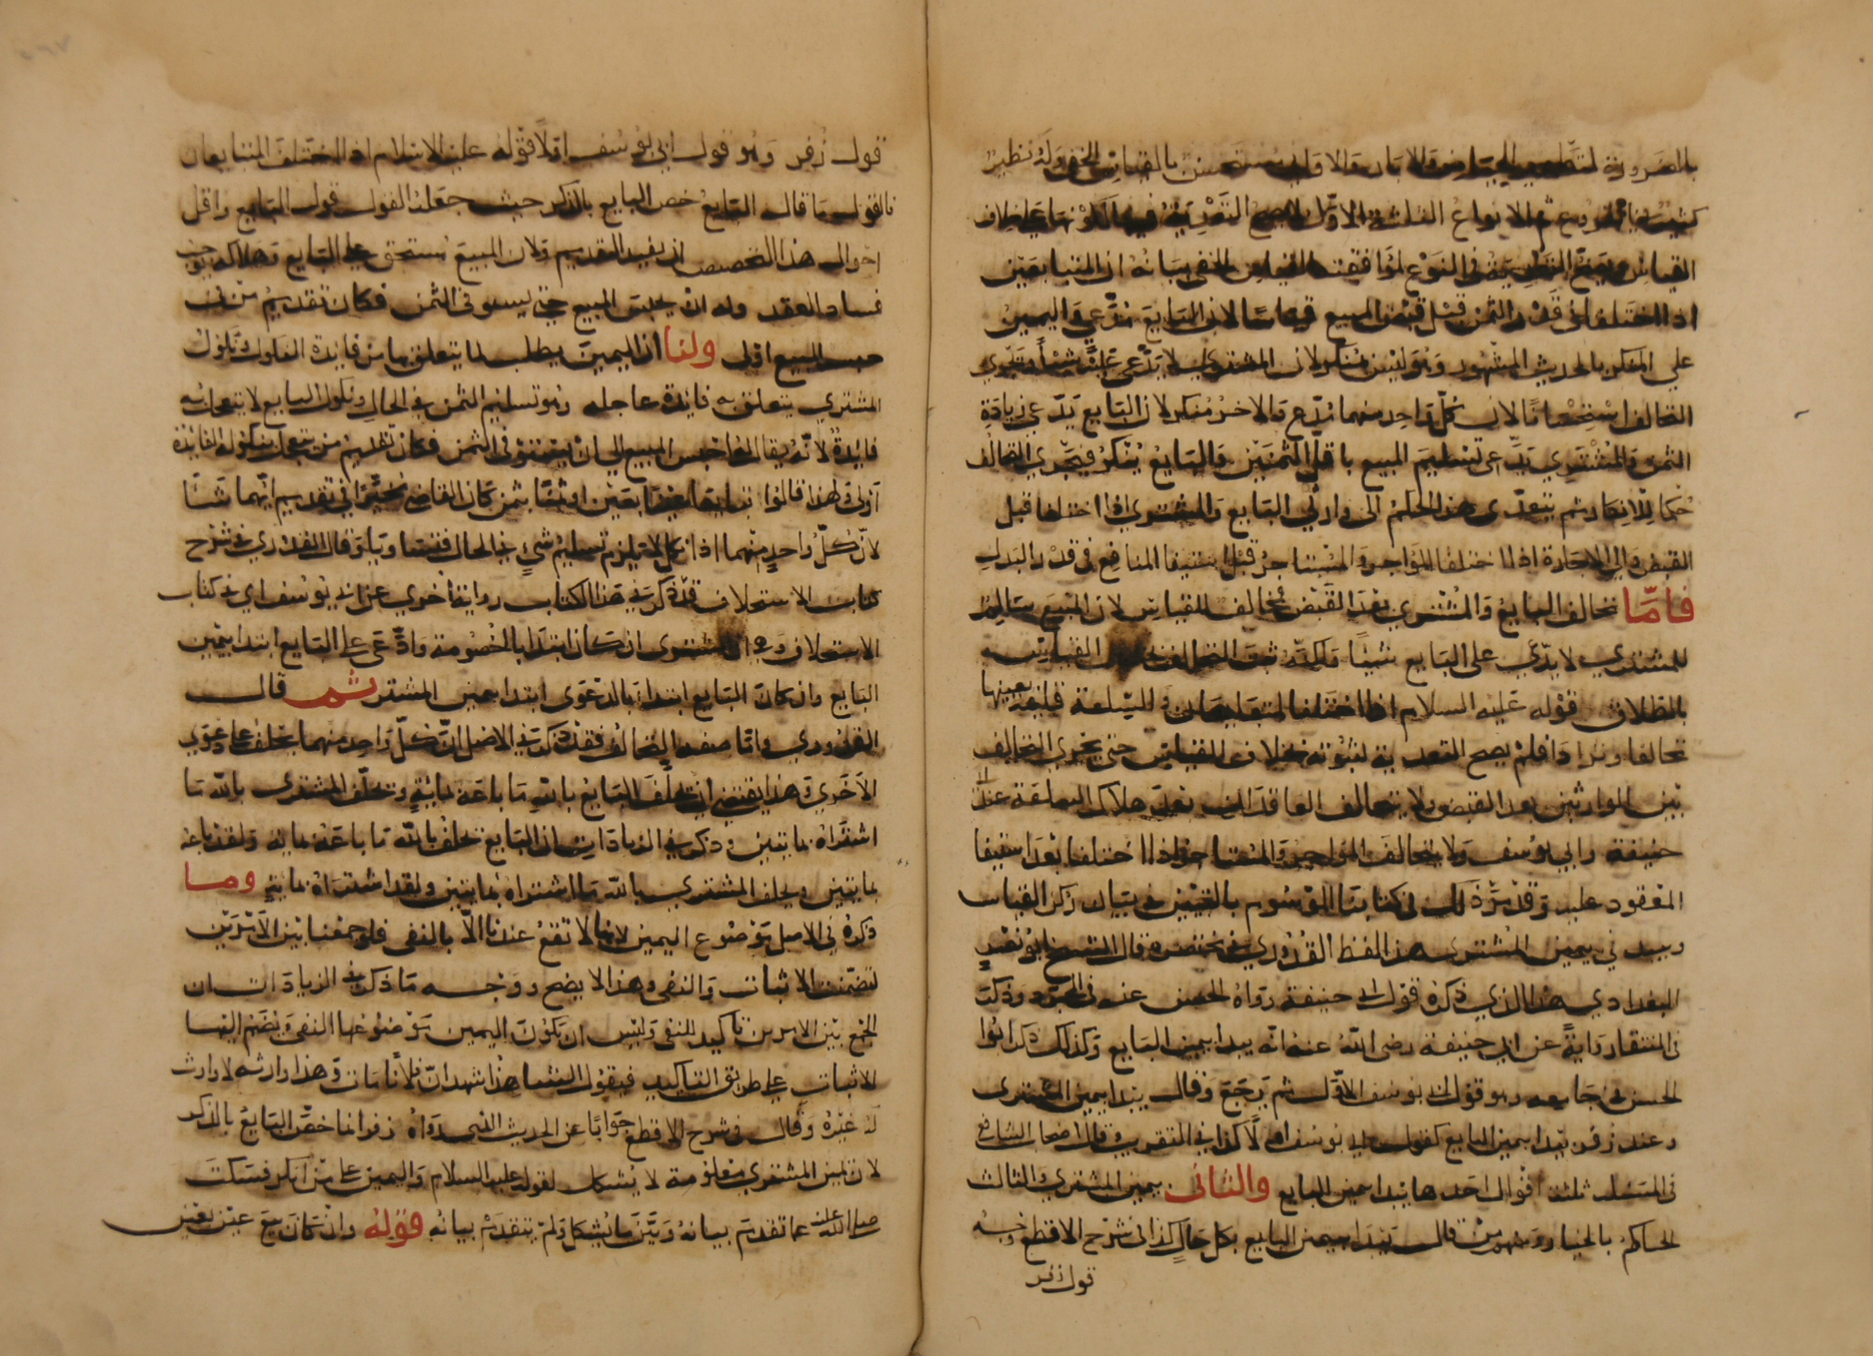 بالضرورة لتطهير الحياض والابار والاواني يستحسن بالقياس الخفي وله نظير
كثيرة في الفروع ثم الانواع الثلثة الاول لا يصح التعدية فيها لكونها على خلاف
القياس ويصح التعدية في النوع لموافقته القياس الخفي بيانه ان المتبايعين
اذا اختلفا في قدر الثمن قبل قبض المبيع قياسا لان البايع مدعي واليمين
على المنكر بالحديث المشهور وهو ليس بمنكر لان المشتري لا يدعي عليه شيئا ويجري
التحالف استحسانا لان كل واحد منهما مدع والاخر منكر لان البايع يدعي زيادة
الثمن والمشتري يدعي تسليم المبيع باقل الثمنين والبايع ينكر فيجري التحالف
حكما للانكار ثم يتعدى هذا الحكم الى وارثي البايع والمشتري اذا اختلفا قبل
القبض والى الاجارة اذا اختلفا المواجر والمستاجر قبل استيفا المنافع في قدر البدل
فاما تحالف البايع والمشتري بعد القبض مخالف للقياس لان المبيع سالم
للمشتري لا يدعي على البايع شيئا ولكنه ثبت التحالف القياس
باطلاق قوله عليه السلام اذا اختلف المتبايعان والسلعة قايمة بعينها
تحالفا وترادا فلم يصح التعدية لثبوته بخلاف القياس حتى يجري التحالف
بين الوارثين بعد القبض ولا يتحالف العاقدان بعد هلاك السلعة عند ابي
حنيفة وابي يوسف ولا يتحالف المواجر والمستاجر اذا اختلفا بعد استيفا
المعقود عليه وقد مر ذلك في كتابنا الموسوم بالتبيين في بيان ركن القياس
ويبدي في يمين المشتري هذا لفظ القدوري في مختصره قال الشيخ ابو نصر
البغدادي هذا الذي ذكره قول ابي حنيفة رواه الحسن عنه في المجرد وذكر
في المنتقا رواية عن ابي حنيفة رضي الله عنه انه يبدا بيمين البايع وكذلك ذكر ابو
الحسن في جامعه وهو قول ابي يوسف الاول ثم رجع وقال يبدا بيمين المشتري
وعند زفر يبدا بيمين البايع كقول ابي يوسف اولا كذا في التقريب وقال اصحاب الشافعي
في المسئلة ثلثة اقوال احدها يبدا بيمين البايع والثاني بيمين المشتري والثالث
الحاكم بالخيار ومنهم من قال يبدا بيمين البايع بكل حال كذا في شرح الاقطع وجه
قول زفر
قول زفر وهو قول ابي يوسف اولا قوله عليه السلام اذا اختلف المتبايعان
فالقول ما قال البايع خص البايع بالذكر حيث جعل القول قول البايع واقل
احوال هذا التخصيص ان يفيد التقديم ولان المبيع مستحق على البايع وهلاكه يوجب
فساد العقد وله ان يحبس المبيع حتى يستوفى الثمن فكان تقديم من له
حبس المبيع اولى ولنا ان اليمين يطلب لما يتعلق بها من فايدة النكول ونكول
المشتري يتعلق به فايدة عاجلة وهو تسليم الثمن في الحال ونكول البايع لا يتعجل به
فايدة لانه يقال له احبس المبيع الى ان يستوفى الثمن فكان تقديم من يتعجل بنكوله الفائدة
اولى ولهذا قالوا تبايعا عينا بعين او ثمنا بثمن كان القاضي مخيرا في تقديم ايهما شئا
لان كل واحد منهما اذا نكل لا يلزم تسليم شي في الحال فتساويا وقال القدوري في شرح
كتاب الاستحلاف قد ذكر في هذا الكتاب رواية اخرى عن ابي يوسف اي في كتاب
الاستحلاف وهي ان المشتري ان كان ابتدا بالخصومة وادعى على البايع ابتدا بيمين
البايع وان كان البايع ابتدا بالدعوى ابتدا بيمين المشتري ثم قال
القدوري واما صفة التحالف فقد ذكر في الاصل ان كل واحد منهما يحلف على دعوى
الاخرى وهذا يقتضي ان يحلف البايع بالله ما باعه بماية ويحلف المشتري بالله ما
اشتراه بمايتين وذكر في الزيادات ان البايع يحلف بالله ما باعه بماية ولقد باعه
بمايتين ويحلف المشتري بالله ما اشتراه بمايتين ولقد اشتراه بماية وما
ذكره في الاصل موضوع اليمين لانها لا تقع عندنا الا بالنفي فلو جمعنا بين الامرين
لتضمنت الاثبات والنفي وهذا لا يصح ووجه ما ذكر في الزيادات ان
الجمع بين الامرين تاكيد للنفي وليس ان يكون اليمين موضوعها النفي ويضم اليها
الاثبات على طريق التاكيد فيقول الشاهد اشهد ان فلانا مات وهذا وارثه لا وارث
له غيره وقال في شرح الاقطع جوابا عن الحديث الذي رواه زفر انما خص البايع بالذكر
لان يمين المشتري معلومة لا يشكل لقوله عليه السلام واليمين على من انكر فسكت
صلى الله عليه عما تقدم بيانه وبين ما يشكل ولم يتقدم بيانه قوله وان كان بيع عين بعين